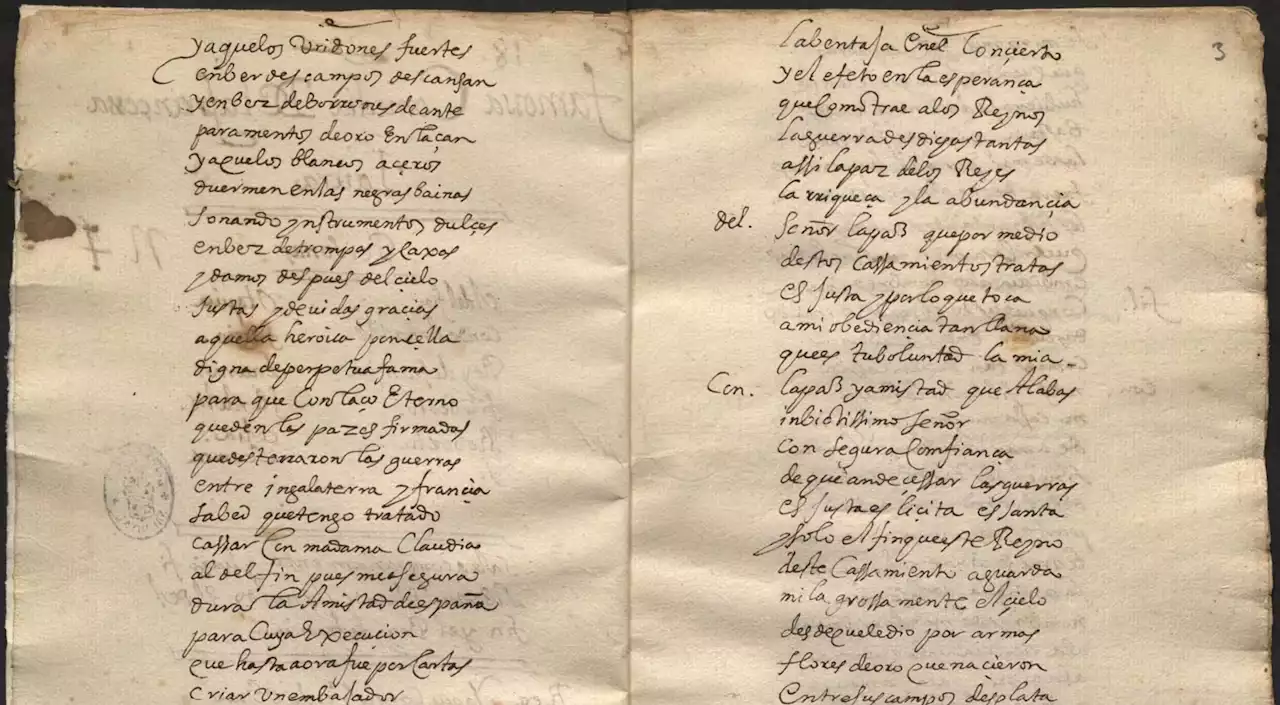 yaquelos bridones fuertes
enberdes campos descansan
yenbez deborrones deante
paramentos deoro Enlaçan
yaquelos blancos açeros
duermen enlas negras bainas
sonando ynstrumentos dulçes
enbez detrompas y caxas
ydamos despues del cielo
Justas ydevidas graçias
aquella heroica ponçella
digna deperpetua fama
para que Con laço Eterno
queden las pazes firmadas
quedesterraron las guerras
entre ingalaterra y françia
sabed quetengo tratado
cassar Con madama Claudia
al delfin pues measegura
dura la Amistad despaña
para Cuya Execucion
que hasta aora fue por Cartas
Criar Un embaxador
3
labentaja Enel Conçierto
yel efeto en la esperança
que Como trae alos Reynos
la guerra desdichas tantas
assi lapaz delos Reyes
la rriqueça yla abundançia
del. Señor lapaz quepor medio
destos Cassamientos tratas
es Justa ypor loque toca
ami obediençia tan llana
quees tuboluntad la mia
Con. lapaz yamistad que Alabas
inbictissimo señor
con segura Comfiança
deque ande çessar las guerras
es Justa es liçita es santa
ysolo el fin queeste Reyno
deste Cassamiento aguarda
milagrossamente el çielo
desdequeledio por armas
flores deoro que naçieron
Entre sus campos desplata